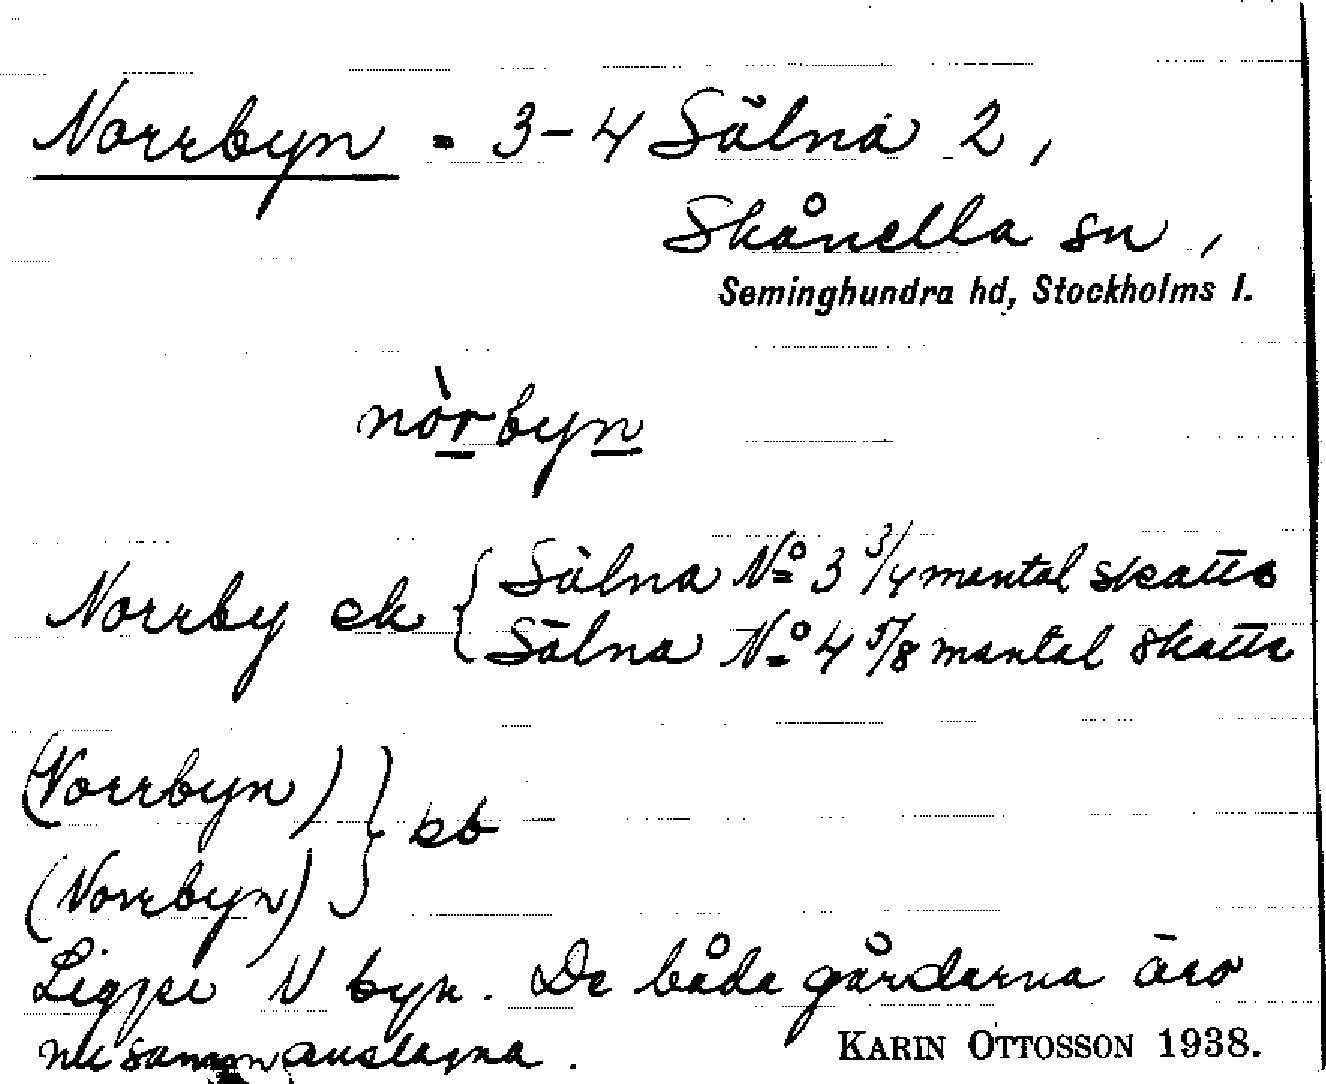 Norrbyn = 3-4 Sälna 2,
Skånella sn,
Seminghundra hd, Stockholms l.
nòrbyn
Norrby ek { Sälna No 3 3/4 mantal skatte
Sälna No 4 5/8 mantal skatte
(Norrbyn) } kb
(Norrbyn)
Ligger N byn. De båda gårdarna äro
nu sammanslagna.
KARIN OTTOSSON 1938.